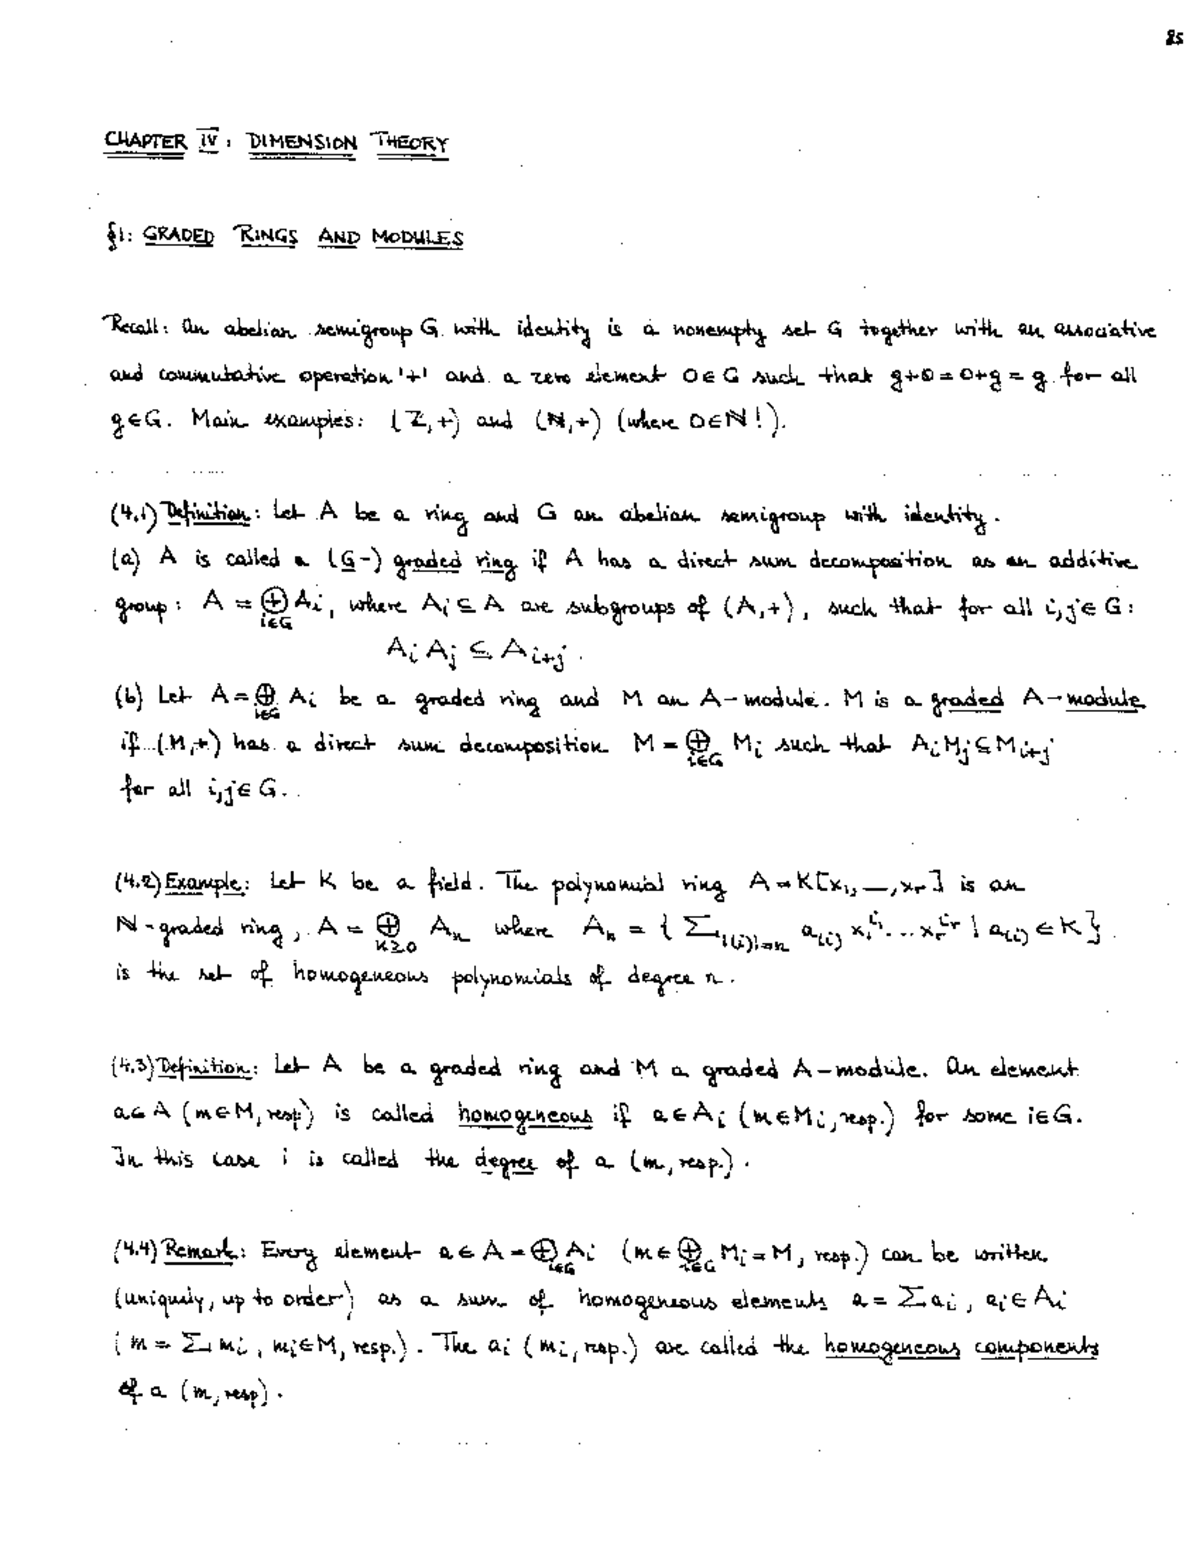 85
CHAPTER IV: DIMENSION THEORY
§1: GRADED RINGS AND MODULES
Recall: An abelian semigroup G with identity is a nonempty set G together with an associative
and commutative operation '+' and a zero element 0∈G such that g+0=0+g=g for all
g∈G. Main examples: (Z,+) and (N,+) (where 0∈N!).
(4.1) Definition: Let A be a ring and G an abelian semigroup with identity.
(a) A is called a (G-) graded ring if A has a direct sum decomposition as an additive
group: A = ⊕_{i∈G} A_i, where A_i ⊆ A are subgroups of (A,+), such that for all i,j∈G:
A_i A_j ⊆ A_{i+j}.
(b) Let A = ⊕_{i∈G} A_i be a graded ring and M an A-module. M is a graded A-module
if (M,+) has a direct sum decomposition M = ⊕_{i∈G} M_i such that A_i M_j ⊆ M_{i+j}
for all i,j∈G.
(4.2) Example: Let K be a field. The polynomial ring A=K[x_1,—,x_r] is an
N-graded ring, A = ⊕_{K≥0} A_n where A_n = { Σ_{|(i)|=n} a_{(i)} x_1^{i_1}...x_r^{i_r} | a_{(i)} ∈ K }
is the set of homogeneous polynomials of degree n.
(4.3) Definition: Let A be a graded ring and M a graded A-module. An element
a∈A (m∈M, resp) is called homogeneous if a∈A_i (m∈M_i, resp.) for some i∈G.
In this case i is called the degree of a (m, resp.).
(4.4) Remark: Every element a∈A=⊕_{i∈G} A_i (m∈⊕_{i∈G} M_i=M, resp.) can be written
(uniquely, up to order) as a sum of homogeneous elements a=Σa_i, a_i∈A_i
(m=Σm_i, m_i∈M, resp.). The a_i (m_i, resp.) are called the homogeneous components
of a (m, resp).